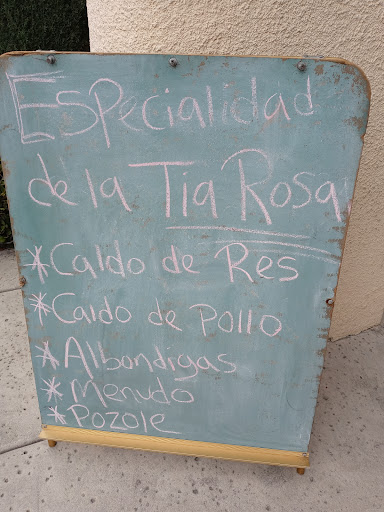 Especialidad
de la Tia Rosa
*Caldo de Res
*Caldo de Pollo
*Albondigas
*Menudo
*Pozole